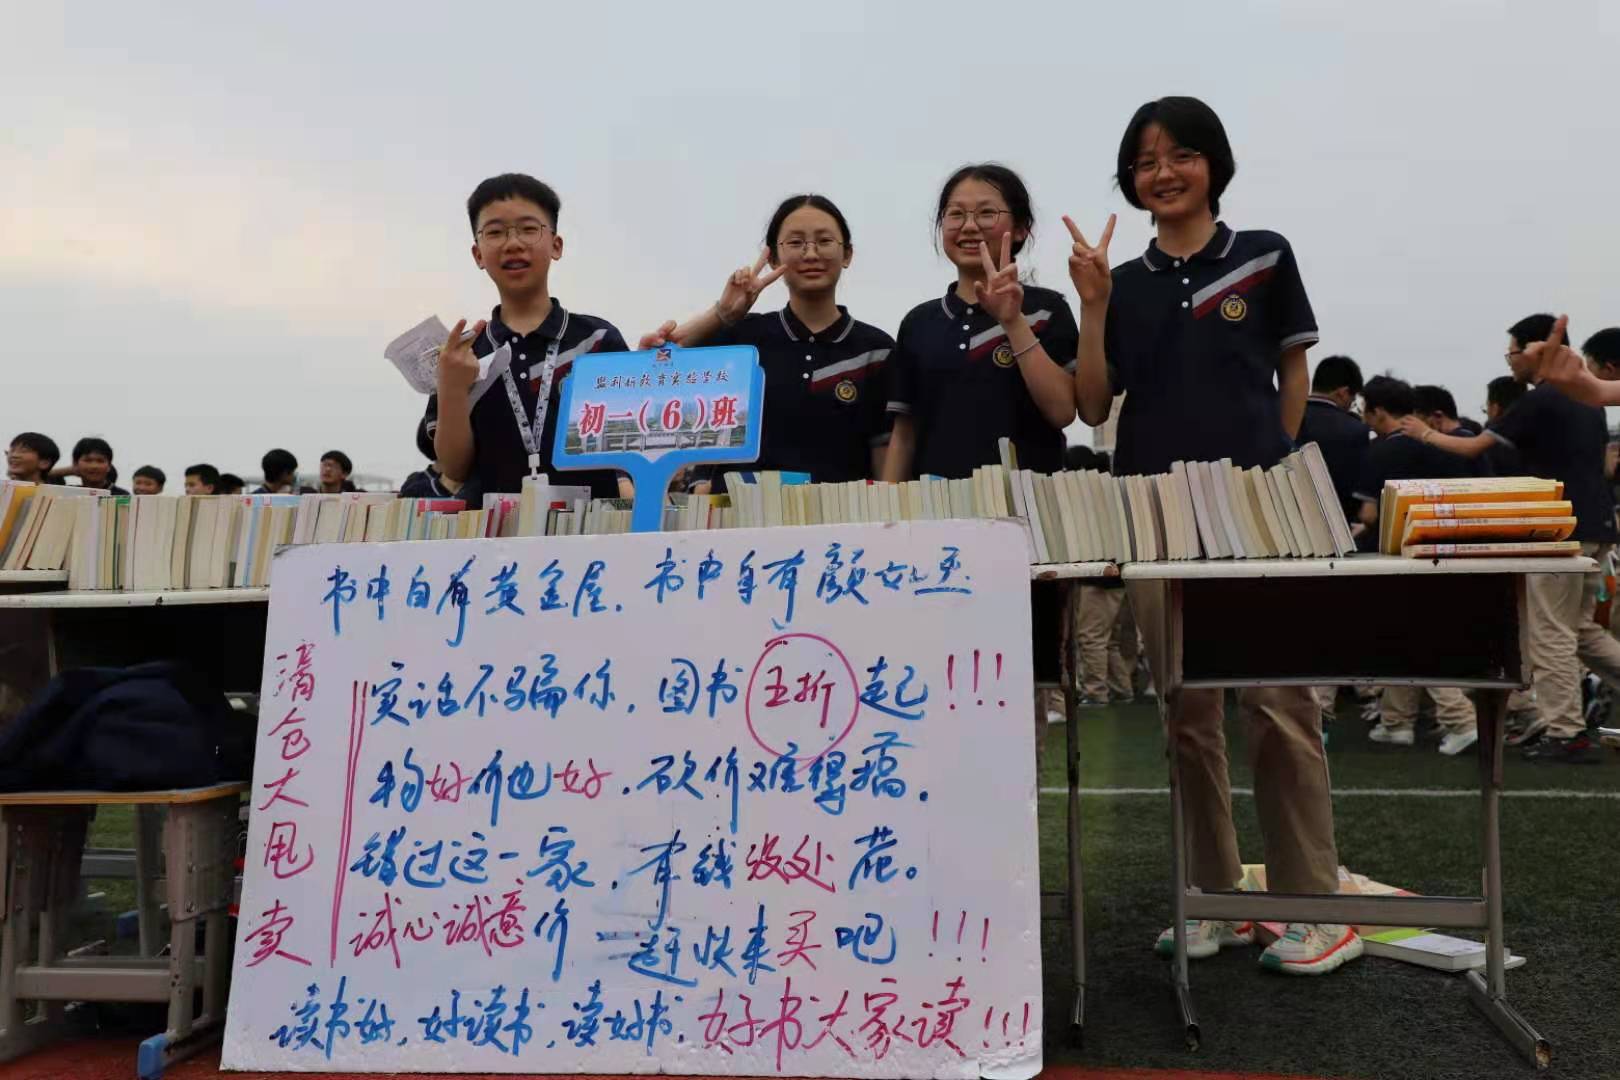 监利新教育实验学校
初一(6)班
书中自有黄金屋.书中自有颜如玉
清仓大甩卖
实话不骗你.图书五折起!!!
物好价也好.砍价难得痛.
错过这一家.有钱没处花。
诚心诚意价 赶快来买吧!!!
读书好.好读书.读好书.好书大家读!!!